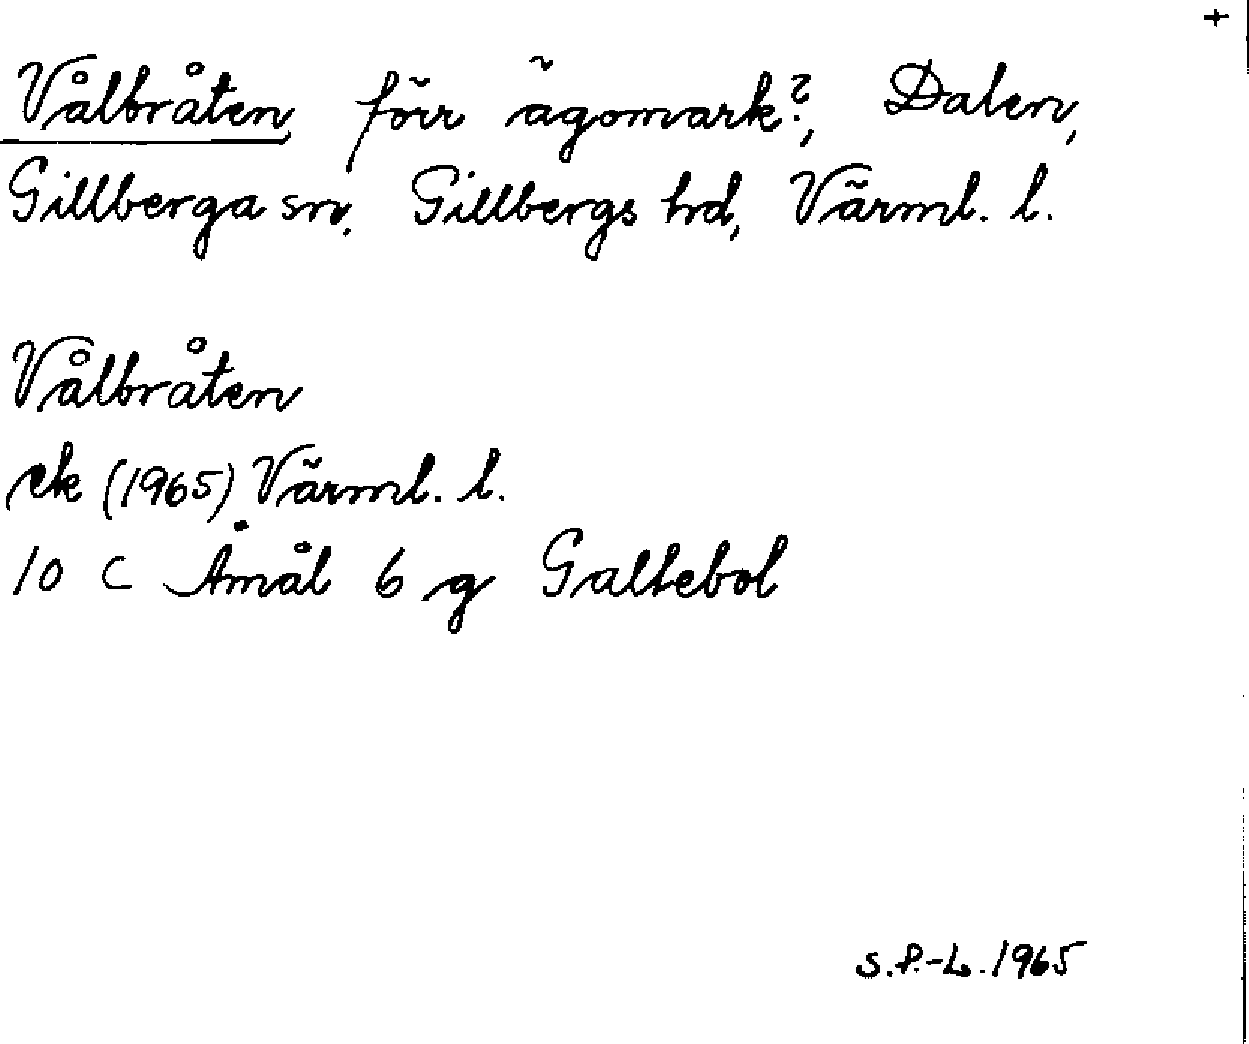 +
Vålbråten förr ägomark?, Dalen,
Gillberga sn, Gillbergs hd, Värml. l.
Vålbråten
ek (1965) Värml. l.
10 C Åmål 6 g Galtebol
S.P.-L. 1965